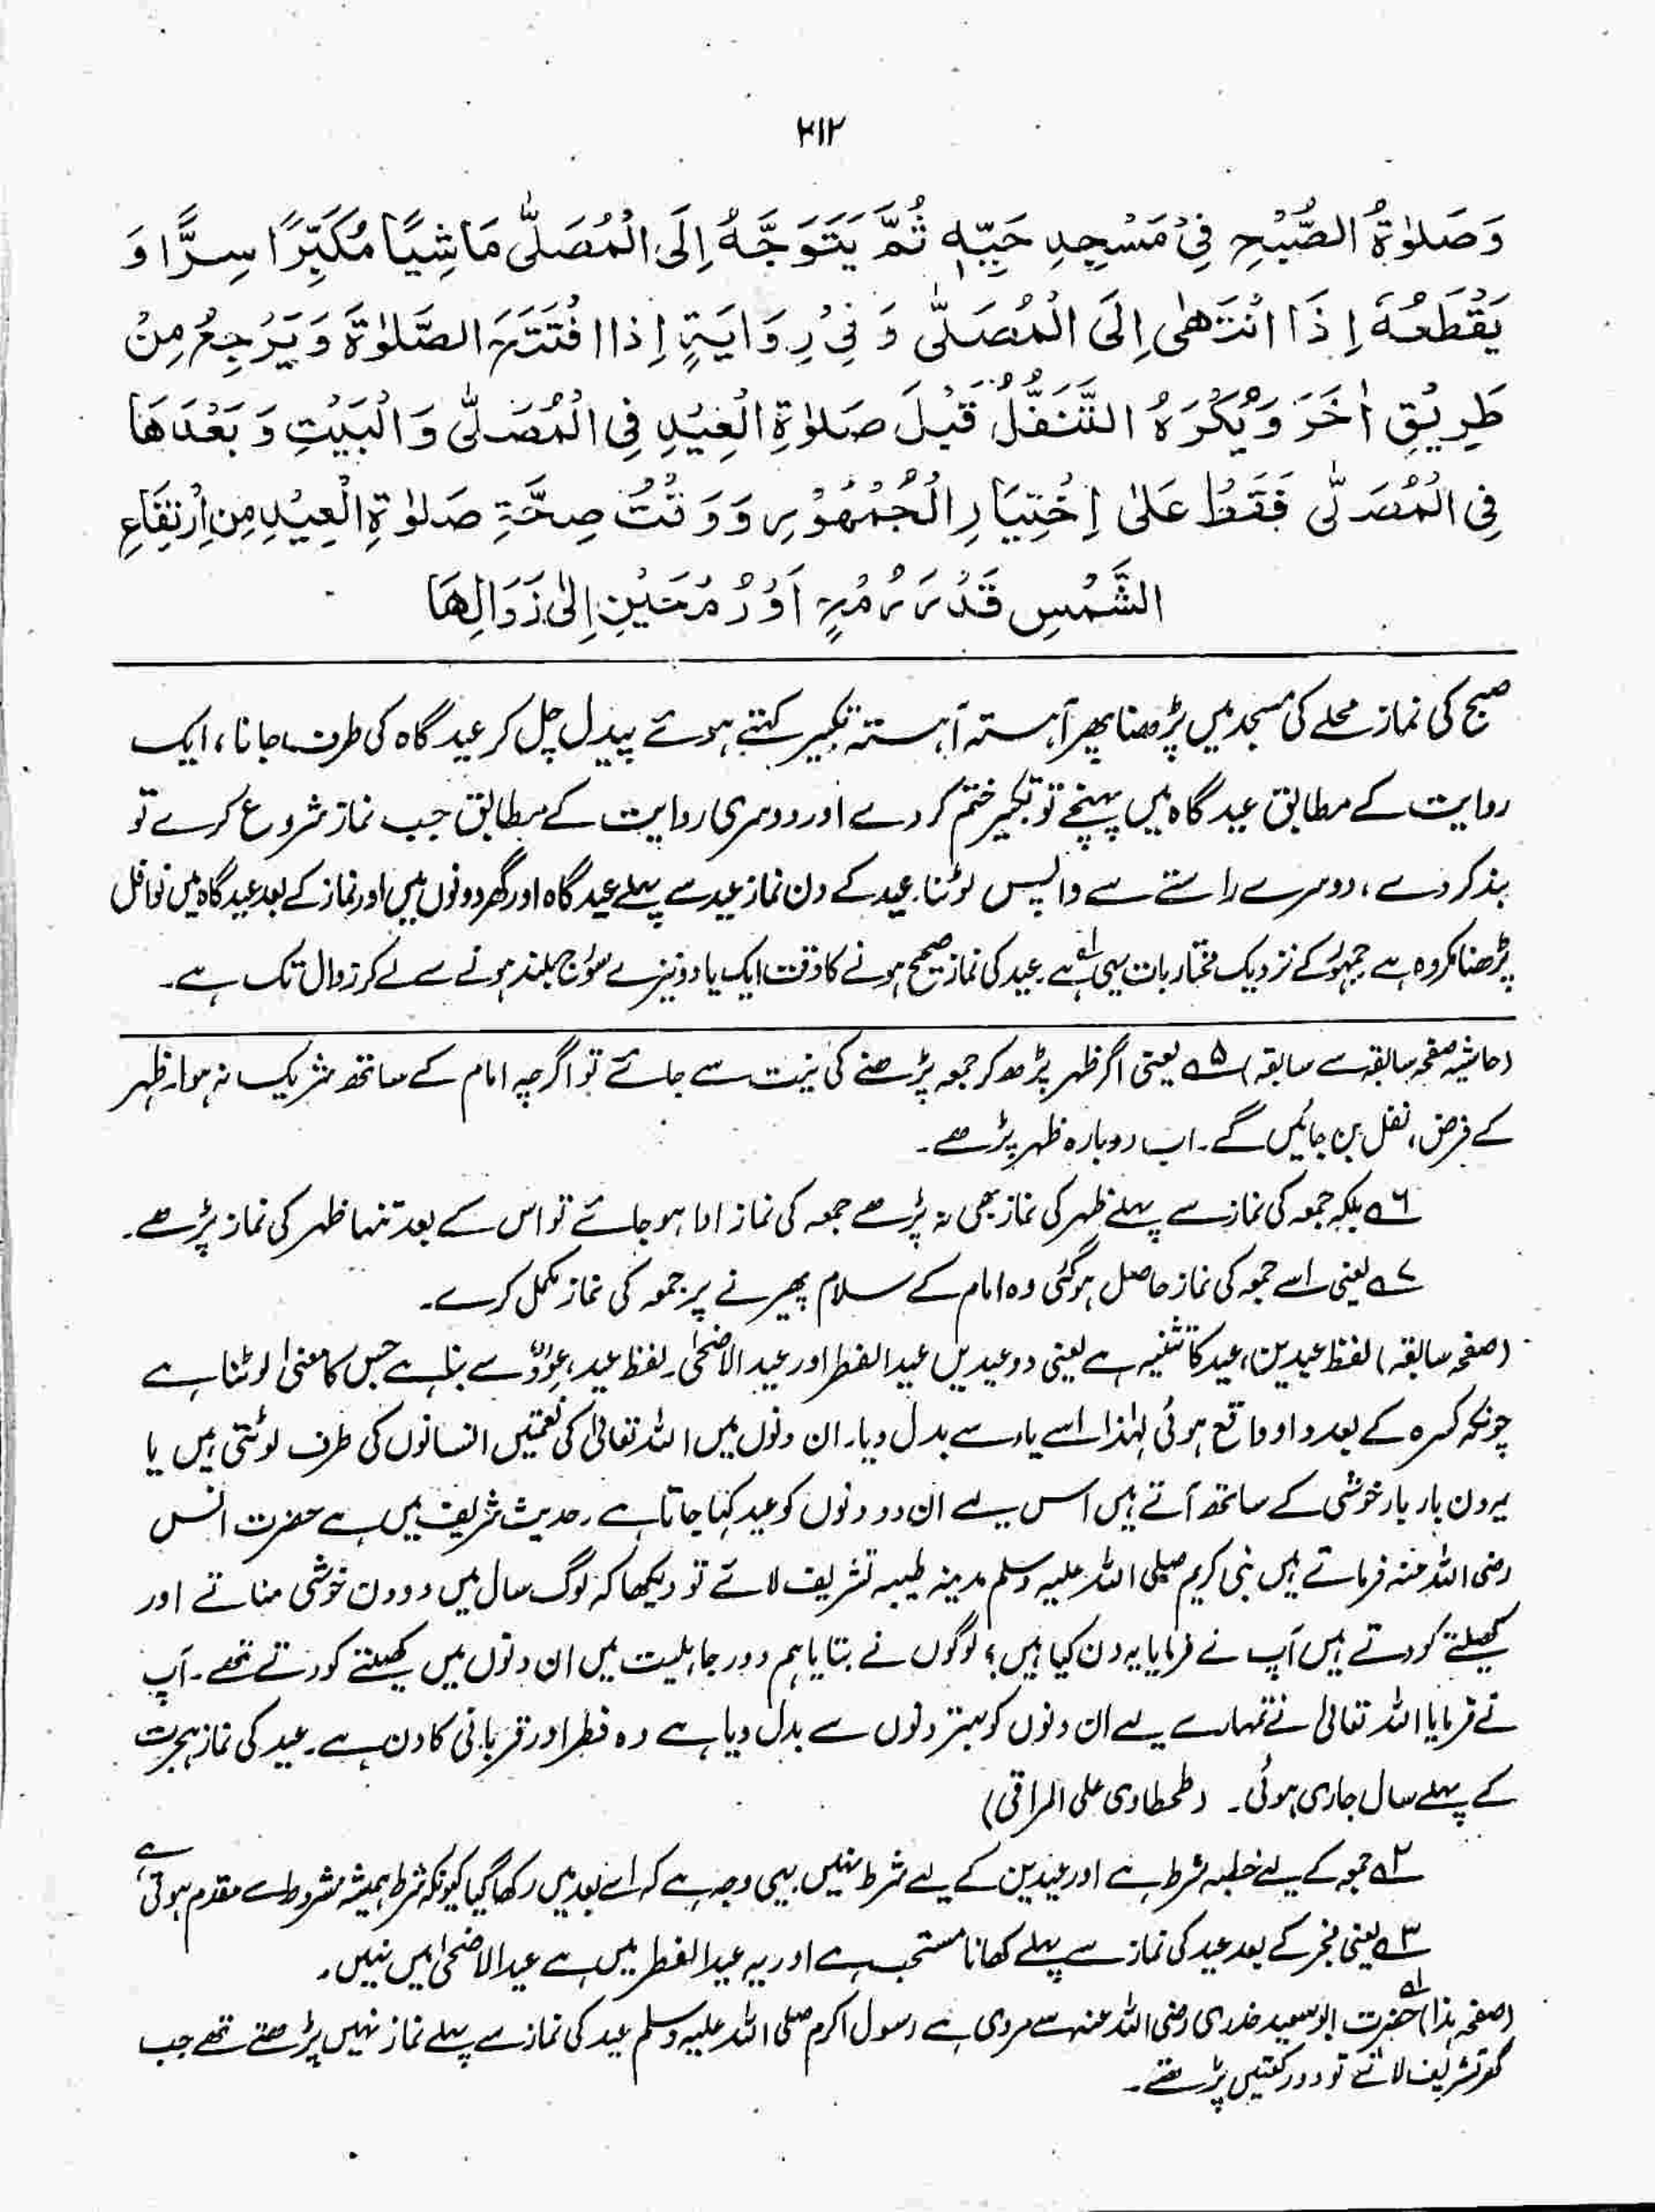 ۲۱۲
وَصَلٰوةُ الصُّبْحِ فِیْ مَسْجِدِ حَیِّهٖ ثُمَّ یَتَوَجَّهُ اِلَی الْمُصَلّٰی مَاشِیًا مُکَبِّرًا سِرًّا وَ
یَقْطَعُهٗ اِذَا انْتَهٰی اِلَی الْمُصَلّٰی وَ فِیْ رِوَایَةٍ اِذَا افْتَتَحَ الصَّلٰوةَ وَیَرْجِعُ مِنْ
طَرِیْقٍ اٰخَرَ وَیُکْرَهُ التَّنَفُّلُ قَبْلَ صَلٰوةِ الْعِیْدِ فِی الْمُصَلّٰی وَالْبَیْتِ وَبَعْدَهَا
فِی الْمُصَلّٰی فَقَطْ عَلیٰ اِخْتِیَارِ الْجُمْهُوْرِ وَوَقْتُ صِحَّةِ صَلٰوةِ الْعِیْدِ مِنِ ارْتِفَاعِ
الشَّمْسِ قَدْرَ رُمْحٍ اَوْ رُمْحَیْنِ اِلیٰ زَوَالِهَا
صبح کی نماز محلے کی مسجد میں پڑھنا پھر آہستہ آہستہ تکبیر کہتے ہوئے پیدل چل کر عید گاہ کی طرف جانا، ایک
روایت کے مطابق عید گاہ میں پہنچے تو تکبیر ختم کر دے اور دوسری روایت کے مطابق جب نماز شروع کرے تو
بند کر دے، دوسرے راستے سے واپس لوٹنا۔ عید کے دن نماز عید سے پہلے عید گاہ اور گھر دونوں میں اور نماز کے بعد عید گاہ میں نوافل
پڑھنا مکروہ ہے جمہور کے نزدیک مختار بات یہی ہے۱؎ عید کی نماز صحیح ہونے کا وقت ایک یا دو نیزے سورج بلند ہونے سے لے کر زوال تک ہے۔
(حاشیہ صفحہ سابقہ سے سابقہ) ۵؎ یعنی اگر ظہر پڑھ کر جمعہ پڑھنے کی نیت سے جائے تو اگرچہ امام کے ساتھ شریک نہ ہوا، ظہر
کے فرض، نفل بن جائیں گے۔ اب دوبارہ ظہر پڑھے۔
۶؎ بلکہ جمعہ کی نماز سے پہلے ظہر کی نماز بھی نہ پڑھے جمعہ کی نماز ادا ہو جائے تو اس کے بعد تنہا ظہر کی نماز پڑھے۔
۷؎ یعنی اسے جمعہ کی نماز حاصل ہو گئی وہ امام کے سلام پھیرنے پر جمعہ کی نماز مکمل کرے۔
(صفحہ سابقہ) لفظ عیدین، عید کا تثنیہ ہے یعنی دو عیدیں عید الفطر اور عید الاضحیٰ۔ لفظ عید، عِوْدٌ سے بنا ہے جس کا معنیٰ لوٹنا ہے
چونکہ کسرہ کے بعد واو واقع ہوئی لہٰذا اسے یاء سے بدل دیا۔ ان دنوں میں اللہ تعالیٰ کی نعمتیں انسانوں کی طرف لوٹتی ہیں یا
یہ دن بار بار خوشی کے ساتھ آتے ہیں اس لیے ان دو دنوں کو عید کہا جاتا ہے۔ حدیث شریف میں ہے حضرت انس
رضی اللہ عنہ فرماتے ہیں نبی کریم صلی اللہ علیہ وسلم مدینہ طیبہ تشریف لائے تو دیکھا کہ لوگ سال میں دو دن خوشی مناتے اور
کھیلتے کودتے ہیں آپ نے فرمایا یہ دن کیا ہیں؟ لوگوں نے بتایا ہم دور جاہلیت میں ان دنوں میں کھیلتے کودتے تھے۔ آپ
نے فرمایا اللہ تعالیٰ نے تمہارے لیے ان دنوں کو بہتر دنوں سے بدل دیا ہے وہ فطر اور قربانی کا دن ہے۔ عید کی نماز ہجرت
کے پہلے سال جاری ہوئی۔ (طحطاوی علی المراقی)
۲؎ جمعہ کے لیے خطبہ شرط ہے اور عیدین کے لیے شرط نہیں یہی وجہ ہے کہ اسے بعد میں رکھا گیا کیونکہ شرط ہمیشہ مشروط سے مقدم ہوتی ہے
۳؎ یعنی فجر کے بعد عید کی نماز سے پہلے کھانا مستحب ہے اور یہ عید الفطر میں ہے عید الاضحیٰ میں نہیں۔
(صفحہ ہذا) ۱؎ حضرت ابو سعید خدری رضی اللہ عنہ سے مروی ہے رسول اکرم صلی اللہ علیہ وسلم عید کی نماز سے پہلے نماز نہیں پڑھتے تھے جب
گھر تشریف لاتے تو دو رکعتیں پڑھتے۔